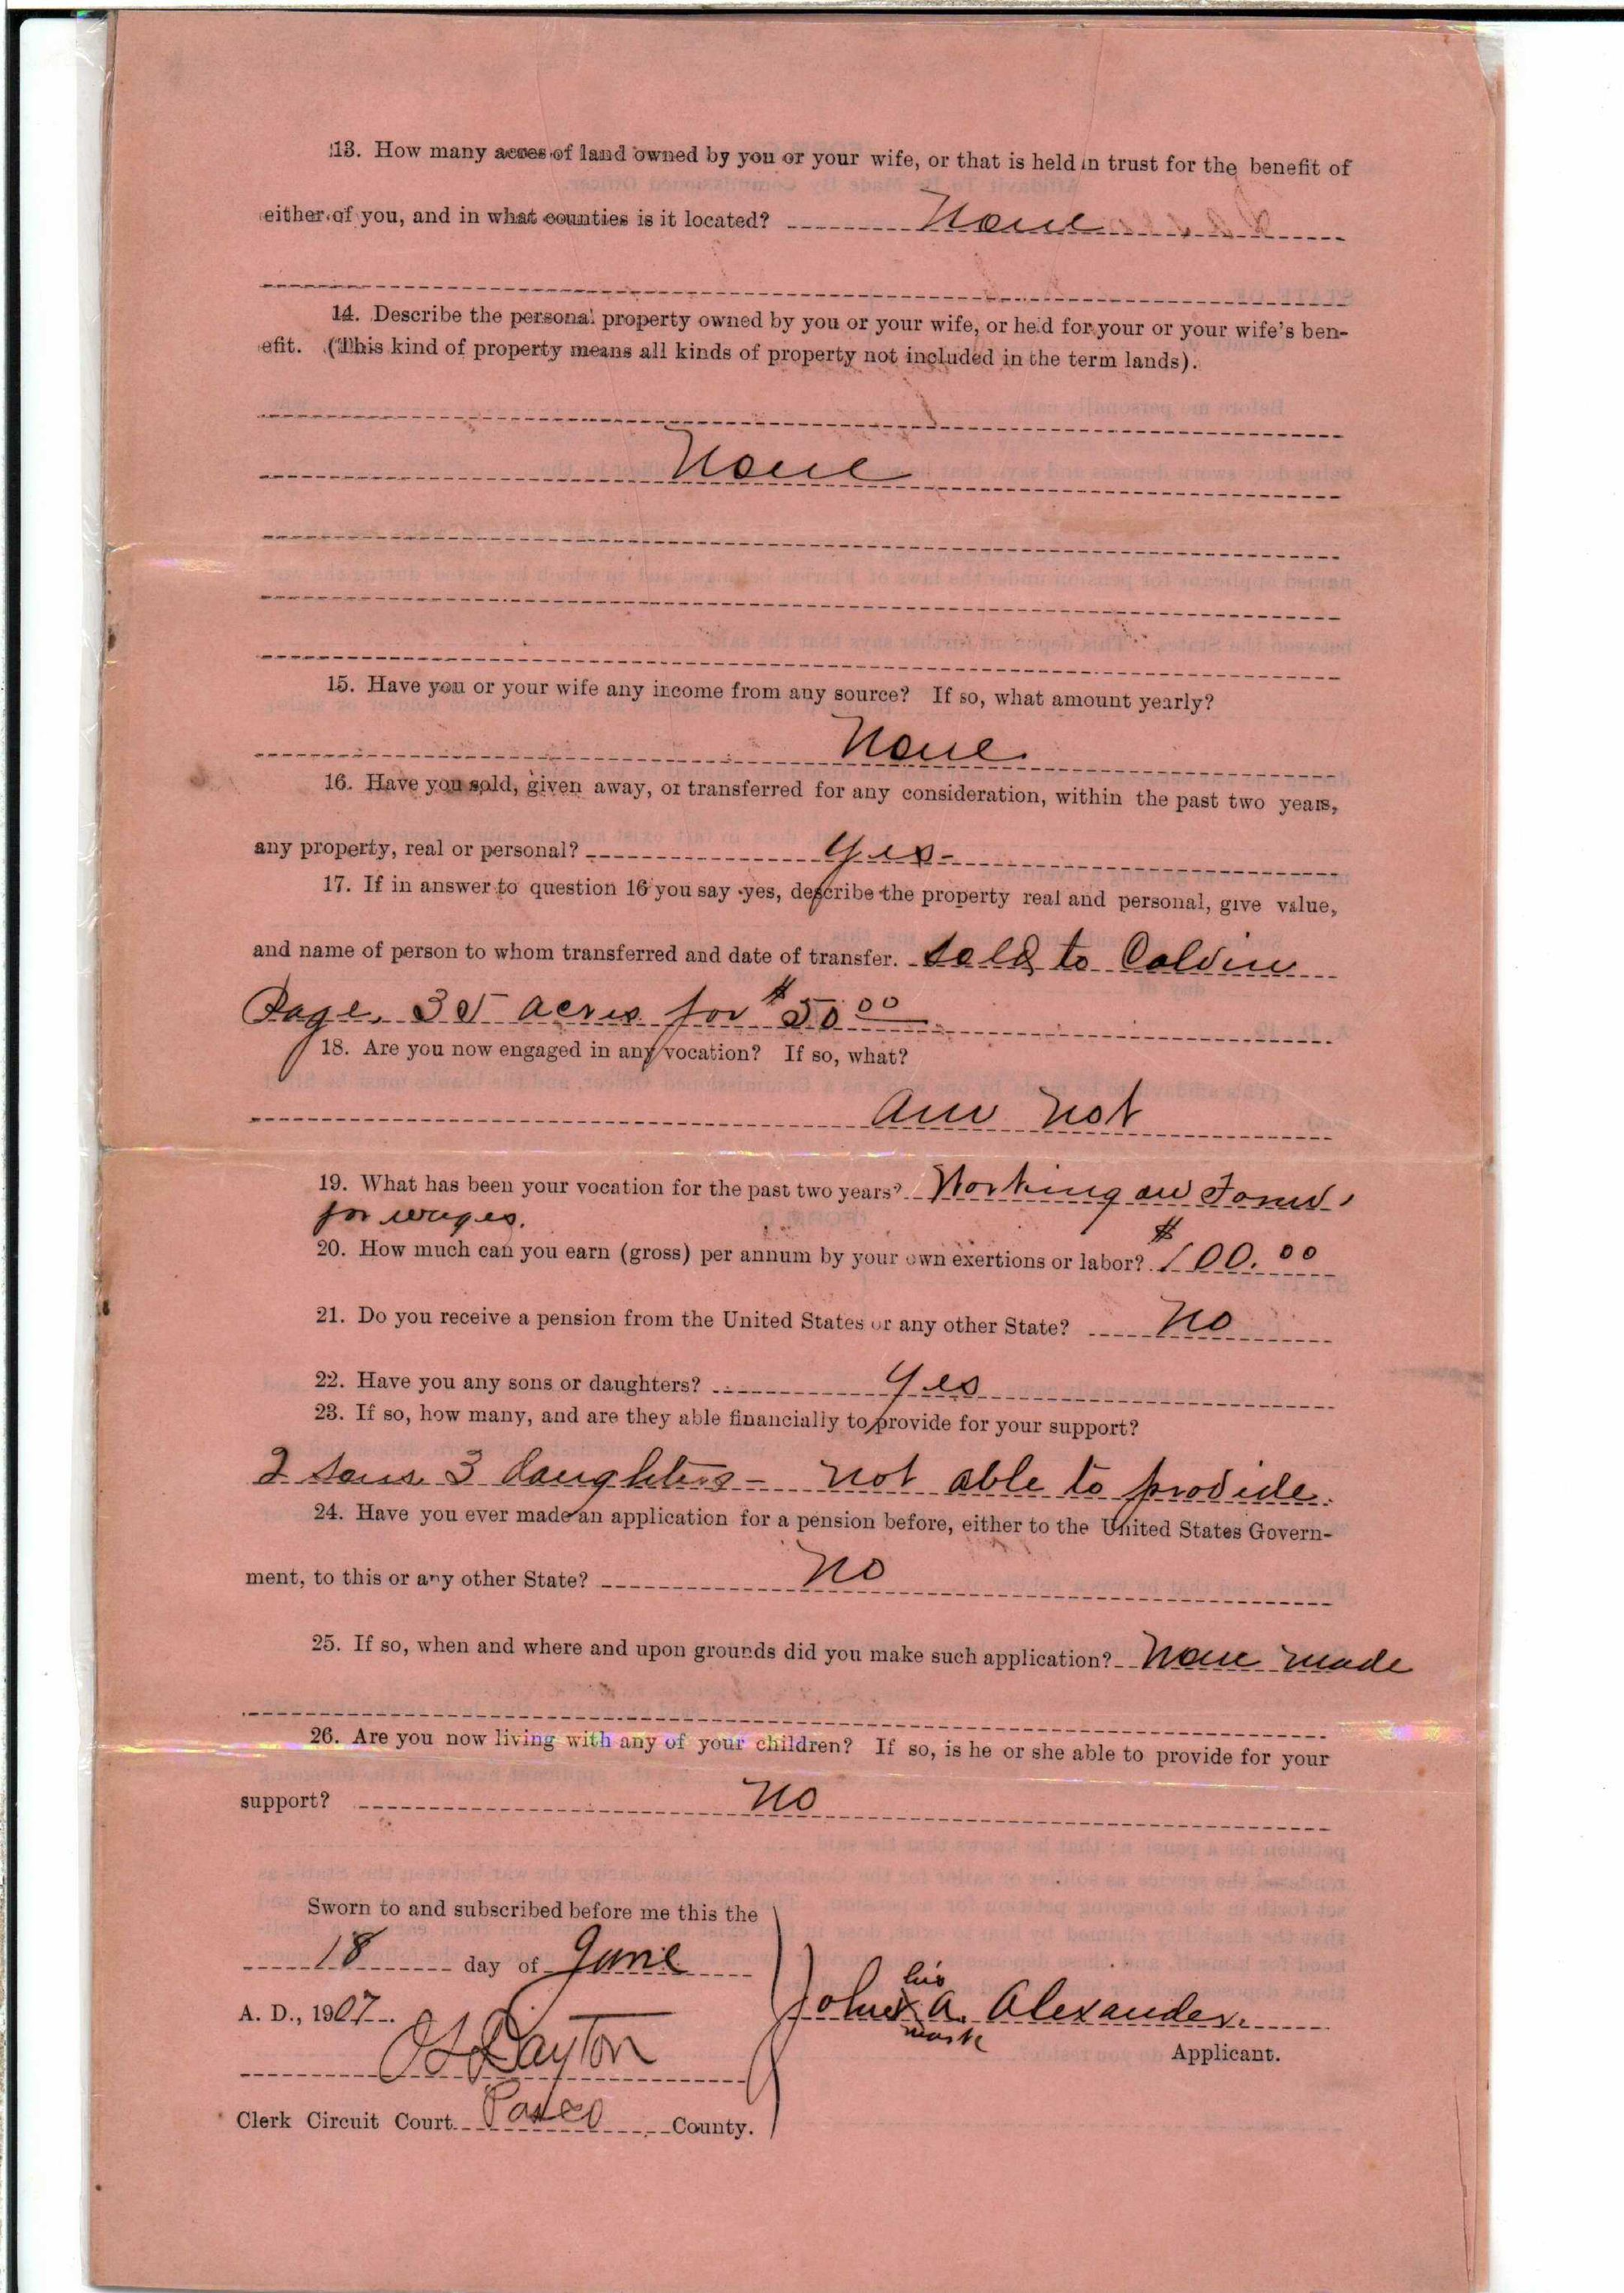 13. How many acres of land owned by you or your wife, or that is held in trust for the benefit of
either of you, and in what counties is it located? None
14. Describe the personal property owned by you or your wife, or held for your or your wife's ben-
efit. (This kind of property means all kinds of property not included in the term lands).
None
15. Have you or your wife any income from any source? If so, what amount yearly?
None
16. Have you sold, given away, or transferred for any consideration, within the past two years,
any property, real or personal? Yes-
17. If in answer to question 16 you say yes, describe the property real and personal, give value,
and name of person to whom transferred and date of transfer. Sold to Calvin
Page, 35 acres for $50 00
18. Are you now engaged in any vocation? If so, what?
am not
19. What has been your vocation for the past two years? Working on Farm,
for wages.
20. How much can you earn (gross) per annum by your own exertions or labor? $100.00
21. Do you receive a pension from the United States or any other State? No
22. Have you any sons or daughters? Yes
23. If so, how many, and are they able financially to provide for your support?
2 sons 3 daughters - not able to provide.
24. Have you ever made an application for a pension before, either to the United States Govern-
ment, to this or any other State? No
25. If so, when and where and upon grounds did you make such application? None made
26. Are you now living with any of your children? If so, is he or she able to provide for your
support? No
Sworn to and subscribed before me this the
18 day of June
A. D., 1907.
his
John x A. Alexander.
mark
Applicant.
Dayton
Clerk Circuit Court Pasco County.